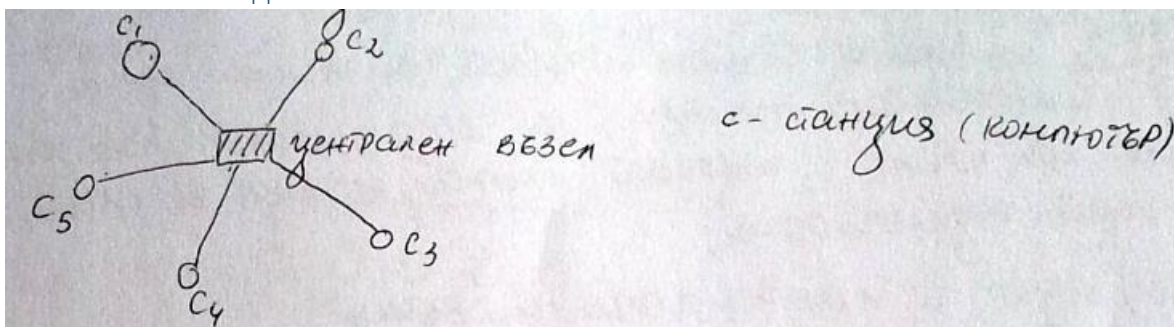 C1
C2
централен възел
c - станция (компютър)
C5
C3
C4